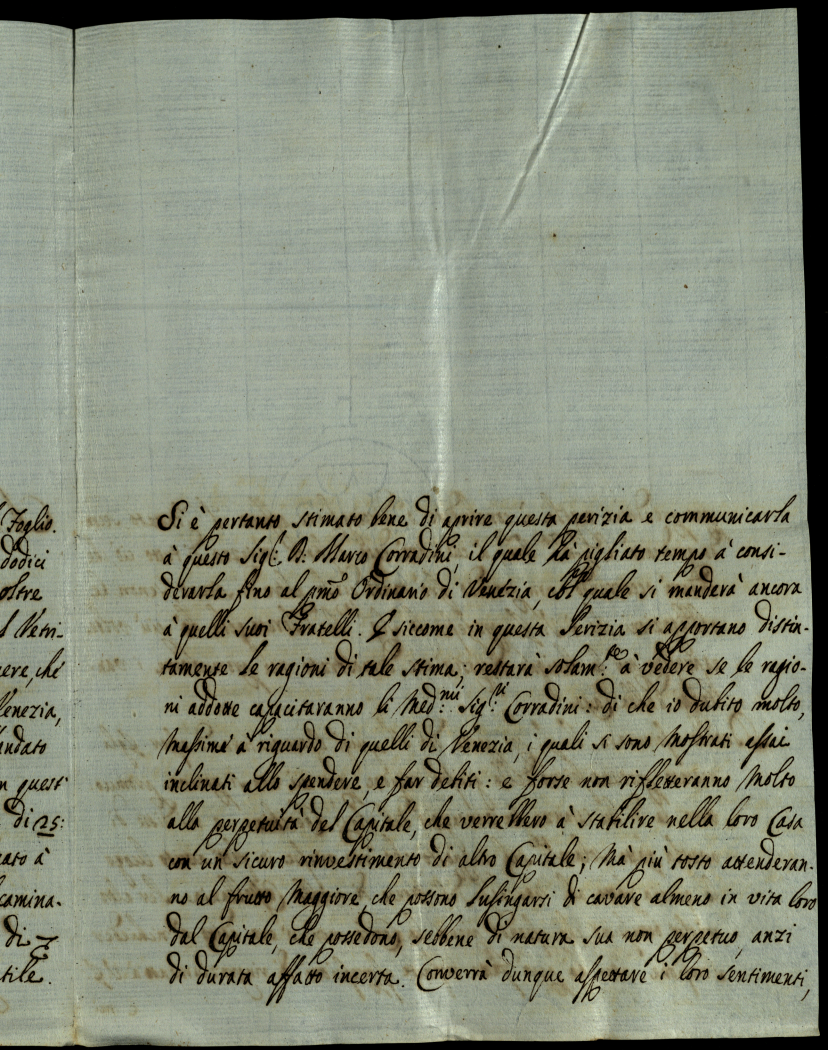 Foglio.
dodici
oltre
l Vetri-
ere, ché
Venezia,
andato
n quest'
di 25:
ato à
camina-
di
tile.
Si è pertanto stimato bene di aprire questa perizia e communicarla
à questo Sig.r D: Marco Corradini, il quale hà pigliato tempo à consi-
derarla fino al pmô Ordinario di Venezia, col quale si manderà ancora
à quelli suoi Fratelli. E siccome in questa Perizia si apportano distin-
tamente le ragioni di tale stima; restarà solam.te à vedere se le ragio-
ni addotte capacitaranno li Med.mi Sig.ri Corradini: di che io dubito molto,
massime à riguardo di quelli di Venezia, i quali si sono mostrati assai
inclinati allo spendere, e far debiti: e forse non rifletteranno molto
alla perpetuità del Capitale, che verrebbero à stabilire nella loro Casa
con un sicuro rinvestimento di altro Capitale; Mà più tosto attenderan-
no al frutto maggiore, che possono lusingarsi di cavare almeno in vita loro
dal Capitale, che possedono, sebbene di natura sua non perpetuo, anzi
di durata affatto incerta. Converrà dunque aspettare i loro sentimenti,